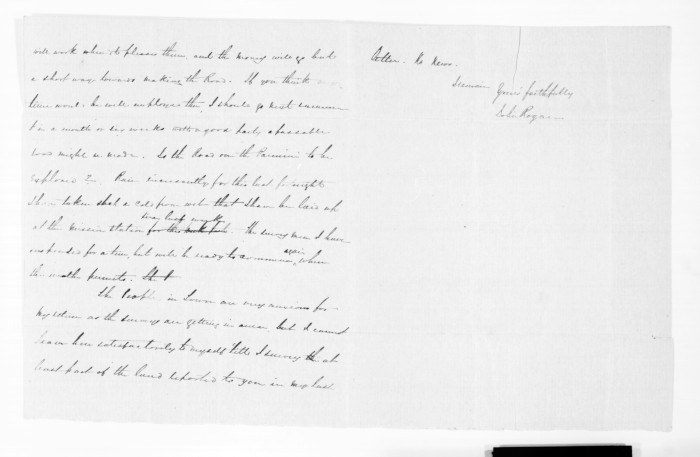 will work when it pleases them and the money will go but
a short way towards making the Road. If you think
he will employ them I should go next summer
for a month or six weeks with a good party a passable
road might be made. Is the Road on the to be
explored Rain incessantly for this last fortnight
I have taken such a cold from wet that I have been laid up
at the mission station for this week the survey men I have
suspended for a time, but will be ready to when
again
the weather permits.
The People in Town are very anxious for
my return as the surveys are getting in arrear but I cannot
leave here satisfactorily to myself till I survey the at
least part of the land reported to you in my last
letter. No news.
I remain Yours faithfully
John Rogan